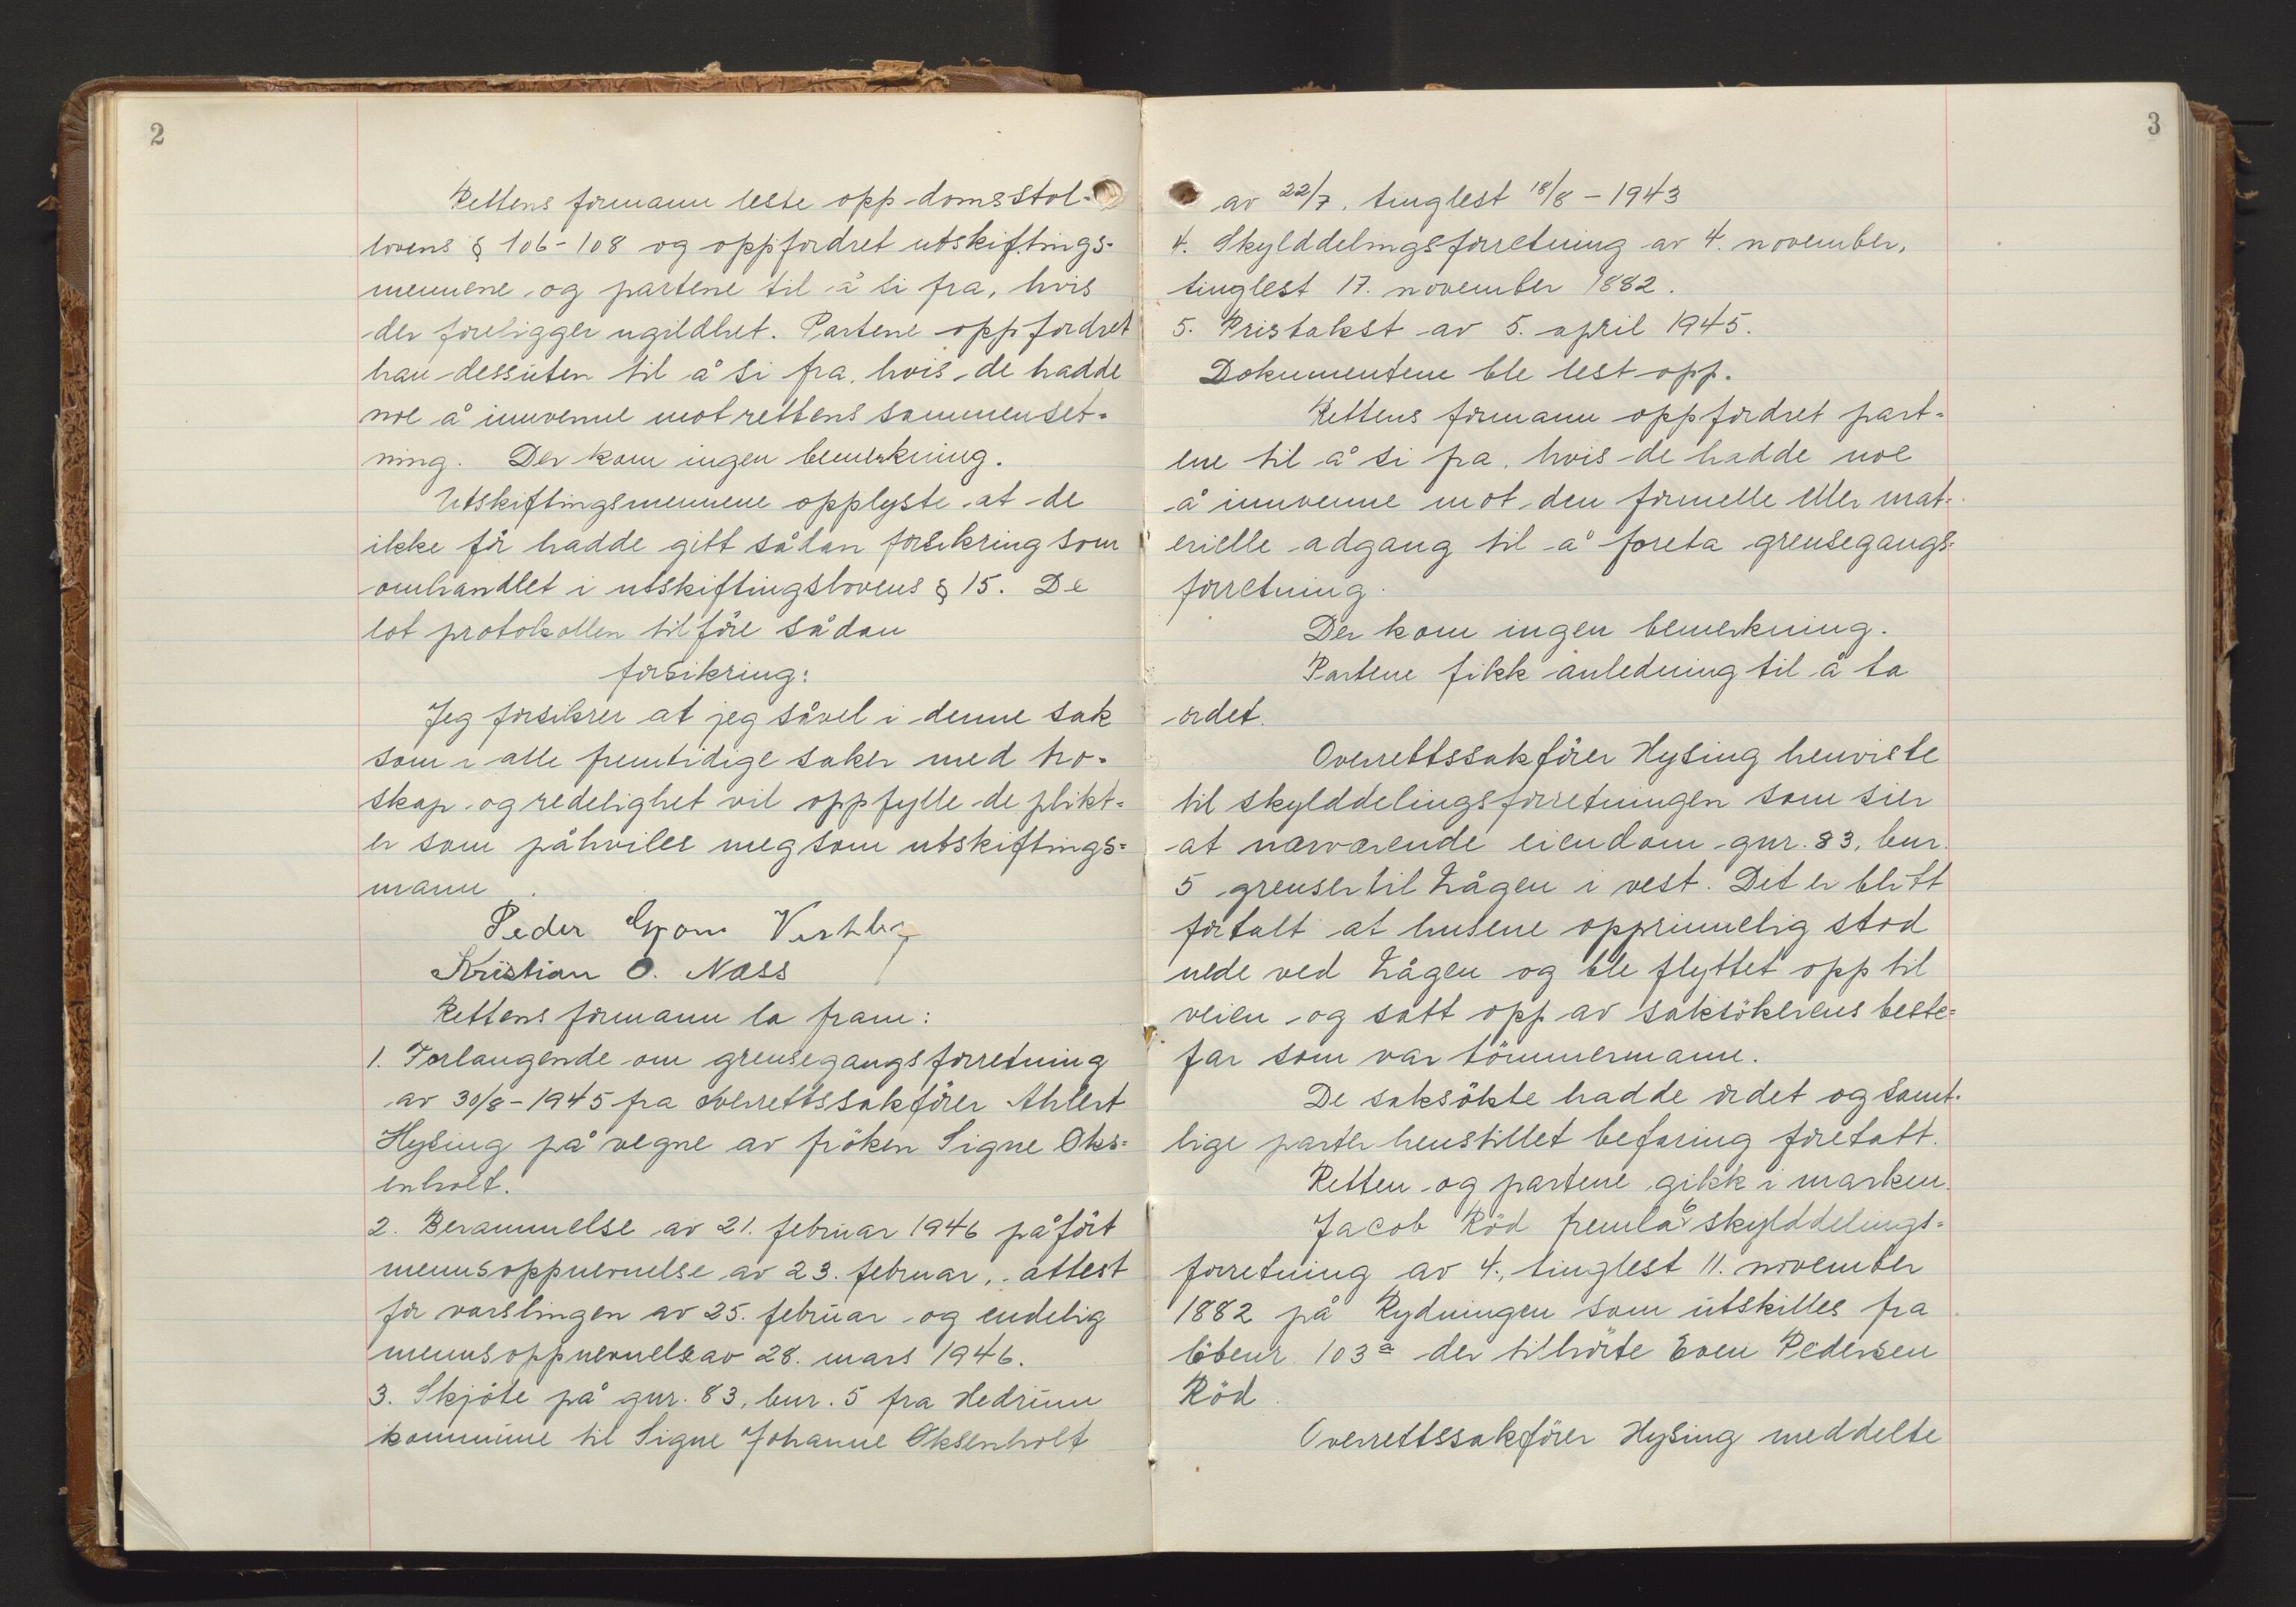 2
Rettens formann leste opp domsstol-
lovens § 106-108 og oppfordret utskiftings-
mennene og partene til å si fra, hvis
der foreligger ugildhet. Partene oppfordret
han dessuten til å si fra, hvis de hadde
noe å innvenne mot rettens sammenset-
ning. Der kom ingen bemerkning.
Utskiftingsmennene opplyste at de
ikke før hadde gitt sådan forsikring som
omhandlet i utskiftingslovens § 15. De
lot protokollen tilføre sådan
forsikring:
Jeg forsikrer at jeg såvel i denne sak
som i alle fremtidige saker med tro-
skap og redelighet vil oppfylle de plikt-
er som påhviler meg som utskiftings-
mann.
Peder
Kristian O. Næss
Rettens formann la fram:
1. Forlangende om grensegangsforretning
av 30/8-1945 fra Overrettssakfører Ahlert
Hysing på vegne av frøken Signe Oks-
enholt.
2. Berammelse av 21. februar 1946 påført
mennsoppnevnelse av 23. februar, attest
for varslingen av 25. februar og endelig
mennsoppnevnelse av 28. mars 1946.
3. Skjøte på gnr. 83, bnr. 5 fra Hedrum
kommune til Signe Johanne Oksenholt
3
av 22/7, tinglest 18/8-1943
4. Skylddelingsforretning av 4. november,
tinglest 17. november 1882.
5. Pristakst av 5. april 1945.
Dokumentene ble lest opp.
Rettens formann oppfordret part-
ene til å si fra, hvis de hadde noe
å innvenne mot den formelle eller mat-
erielle adgang til å foreta grensegangs-
forretning.
Der kom ingen bemerkning.
Partene fikk anledning til å ta
ordet.
Overrettssakfører Hysing henviste
til skylddelingsforretningen som sier
at nærværende eiendom gnr. 83, bnr.
5 grenser til Lågen i vest. Det er blitt
fortalt at husene opprinnelig stod
nede ved Lågen og ble flyttet opp til
veien og satt opp av saksøkerens beste-
far som var tømmermann.
De saksøkte hadde ordet og samt-
lige parter henstillet befaring foretatt.
Retten og partene gikk i marken.
Jacob Röd fremla 6 skylddelings-
forretning av 4., tinglest 11. november
1882 på Rydningen som utskilles fra
löbenr. 103a der tilhørte Even Pedersen
Röd.
Overrettssakfører Hysing meddelte